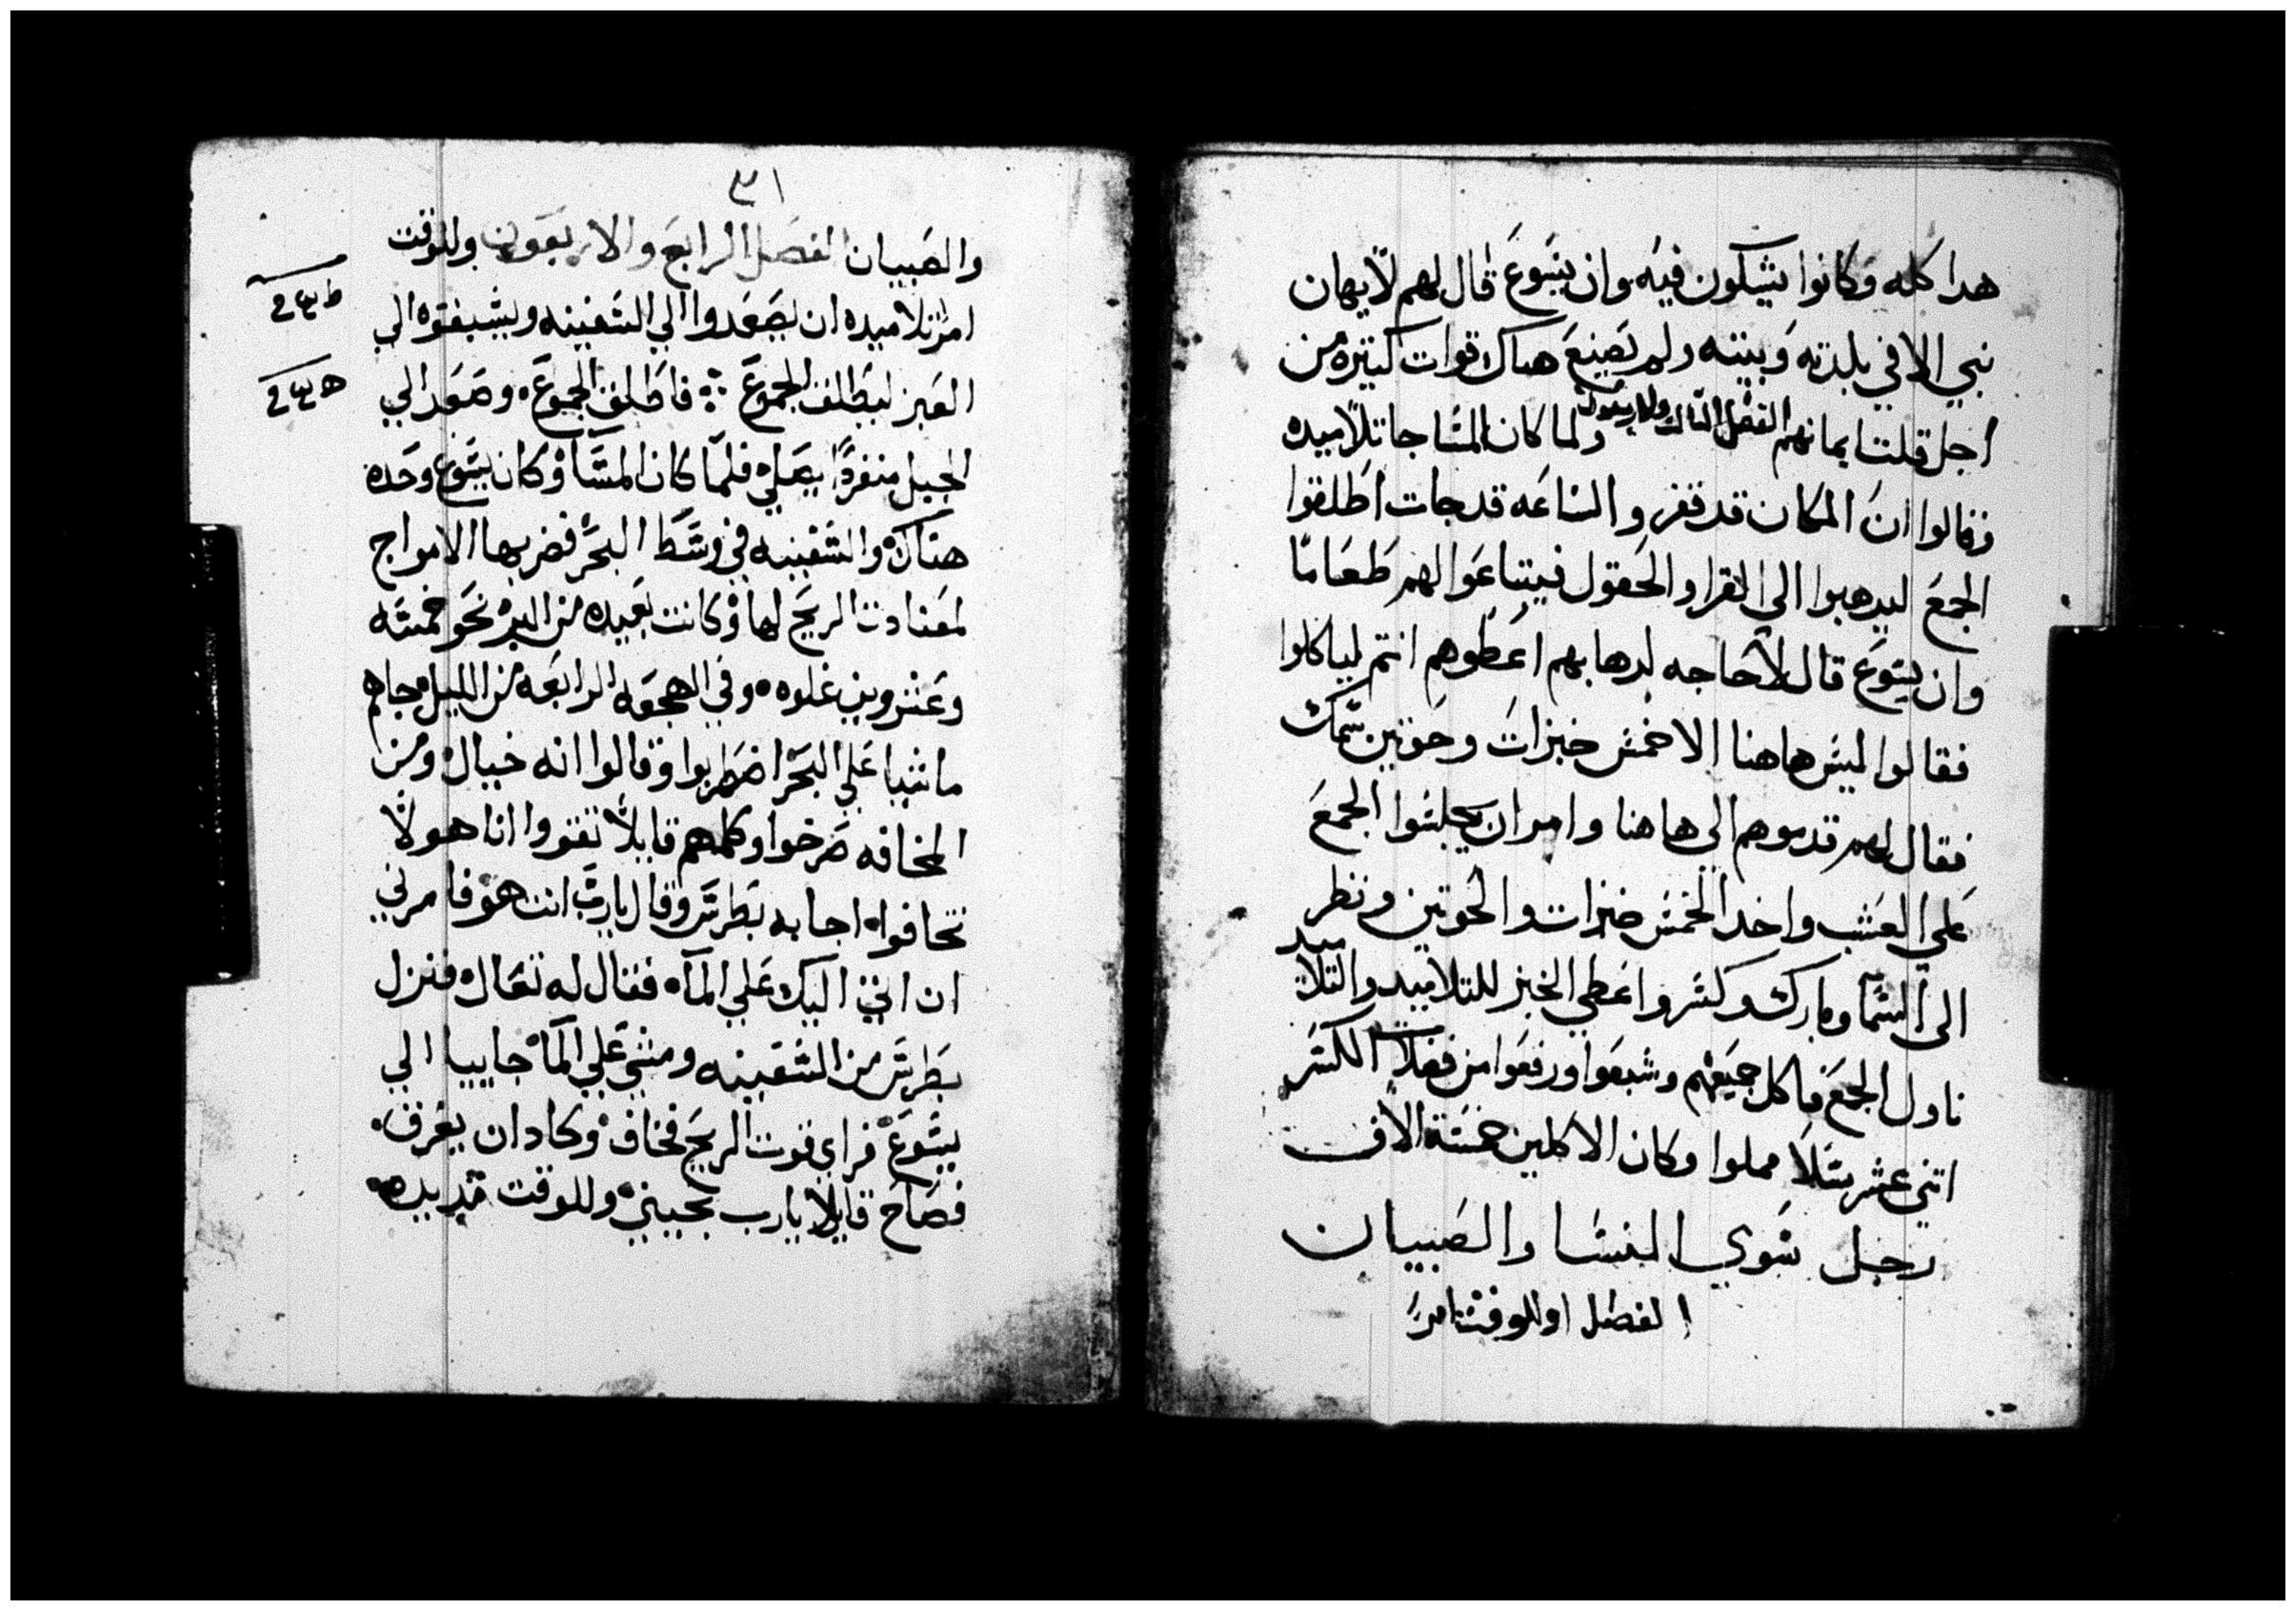 هدا كله وكانوا يشكون فيه وان يسوع قال لهم لا يهان
نبي الا في بلدته وبيته ولم يصنع هناك قوات كتيره من
اجل قلت ايمانهم الفصل التالت والاربعون ولما كان المسا جا تلاميده
وقالوا ان المكان قد قفر والساعه قد جات اطلقوا
الجمع ليدهبوا الى القرا والحقول فيبتاعوا لهم طعاما
وان يسوع قال لا حاجه لدهابهم اعطوهم انتم لياكلوا
فقالوا ليس هاهنا الا خمس خبزات وحوتين سمك
فقال لهم قدموهم الى هاهنا وامر ان يجلسوا الجمع
على العشب واخد الخمس خبزات والحوتين ونظر
الى السما وبارك وكسر واعطي الخبز للتلاميد والتلاميد
ناول الجمع فاكل جميعهم وشبعوا ورفعوا من فضلات الكسر
اتني عشر سلا مملوا وكان الاكلين خمسة الاف
رجل سوي النسا والصبيان
الفصل وللوقت امر
٣١
والصبيان الفصل الرابع والاربعون وللوقت
امر تلاميده ان يصعدوا الي السفينه ويسبقوه الي
العبر ليطلق الجموع فاطلق الجموع وصعد الي
الجبل منفردا يصلي فلما كان المسا وكان يسوع وحده
هناك والسفينه في وسط البحر فضربها الامواج
لمعنادت الريح لها وكانت بعيده من البر نحو خمسه
وعشروين غلوه وفي الهجعه الرابعه من الليل جاهم
ماشيا علي البحر اضطربوا وقالوا انه خيال ومن
المخافه صرخوا وكلمهم قايلا تقووا انا هو لا
تخافوا اجابه بطرس وقال يارب انت هو فامرني
ان اتي اليك علي الما فقال له تعال فنزل
بطرس من السفينه ومشي علي الما جاييا الي
يسوع فراي قوت الريح فخاف وكاد ان يغرق
فصاح قايلا يارب نجيني وللوقت مد يده